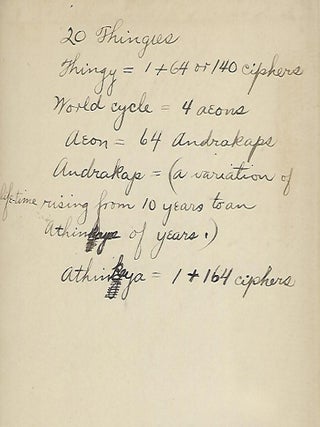 20 Thingies
Thingy = 1+64 or 140 ciphers
World cycle = 4 aeons
Aeon = 64 Andrakaps
Andrakap = (a variation of
life-time rising from 10 years to an
of years.)
= 1+164 ciphers